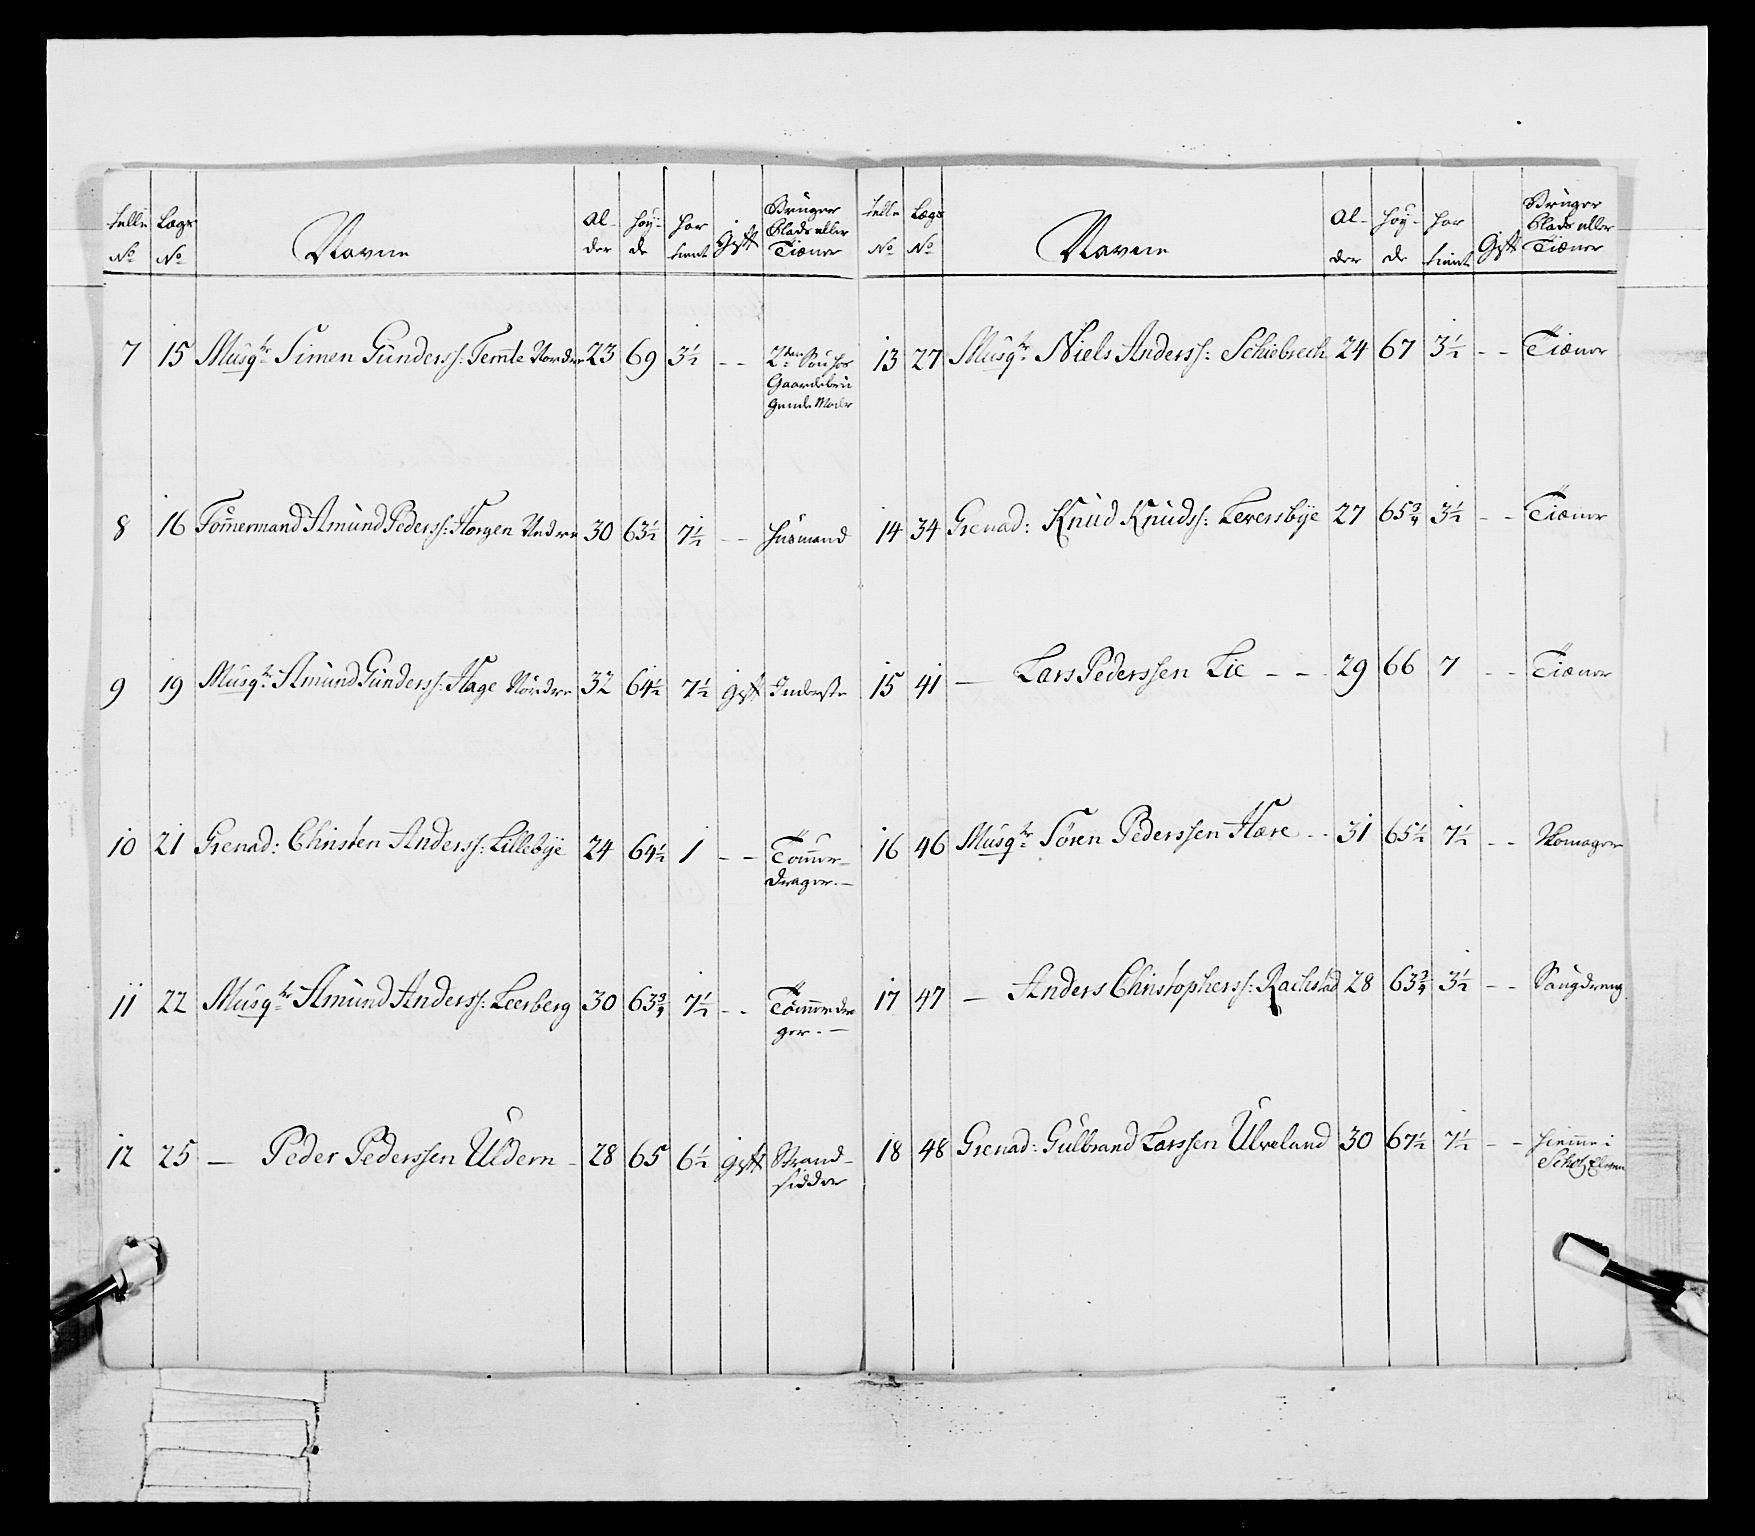 Telle No | Lægs No | Navne | Al- der | Høy- de | Har tient | Gift | Bruger Plads eller Tiæner
7 | 15 | Musqtr Simen Gunderss: Temte Nordre | 23 | 69 | 3½ | - - | 2den Søn hos
Gaardebru
gende Moder
8 | 16 | Tom̄ermand Amund Pederss: Horgen Nedre | 30 | 63½ | 7½ | - - | Husmand
9 | 19 | Musqtr Amund Gunderss: Hage Nordre | 32 | 64½ | 7½ | gift | Inderste
10 | 21 | Grenad: Christen Anderss: Lillebÿe | 24 | 64½ | 1 | - - | Tømer-
drager. -
11 | 22 | Musqtr Amund Anderss: Leerberg | 30 | 63¾ | 7½ | - - | Tømmerdra
ger. -
12 | 25 | — Peder Pederssen Uldern - | 28 | 65 | 6½ | gift | Strand-
sidder
Telle No | Lægs No | Navne | Al- der | Høy- de | Har tient | Gift | Bruger Plads eller Tiæner
13 | 27 | Musqtr Niels Anderss: Schiebrech | 24 | 67 | 3½ | - - | Tiæner
14 | 34 | Grenad: Knud Knudss: Leversbÿe | 27 | 65¾ | 3½ | - - | Tiæner
15 | 41 | — Lars Pederssen Lie - - | 29 | 66 | 7 | - - | Tiæner
16 | 46 | Musqtr Søren Pederssen Hære - - | 31 | 65½ | 7½ | - - | Skomager
17 | 47 | — Anders Christopherss: Rachestad | 28 | 63¾ | 3½ | - - | Saugdreng
18 | 48 | Grenad: Gulbrand Larssen Ulveland | 30 | 67½ | 7½ | - - | hiemme i
Elven